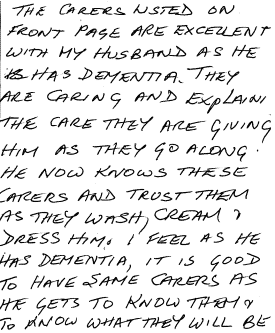 THE CARERS LISTED ON
FRONT PAGE ARE EXCELLENT
WITH MY HUSBAND AS HE
HAS DEMENTIA. THEY
ARE CARING AND EXPLAIN
THE CARE THEY ARE GIVING
HIM AS THEY GO ALONG.
HE NOW KNOWS THESE
CARERS AND TRUST THEM
AS THEY WASH, CREAM &
DRESS HIM. I FEEL AS HE
HAS DEMENTIA, IT IS GOOD
TO HAVE SAME CARERS AS
HE GETS TO KNOW THEM &
TO KNOW WHAT THEY WILL BE